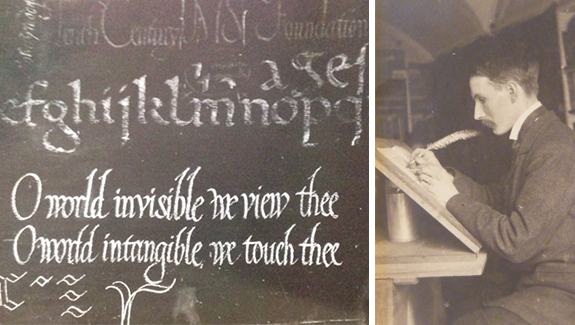 Tenth Century MS. Foundation
a g e s
efghijklmnopq
O world invisible we view thee
O world intangible, we touch thee